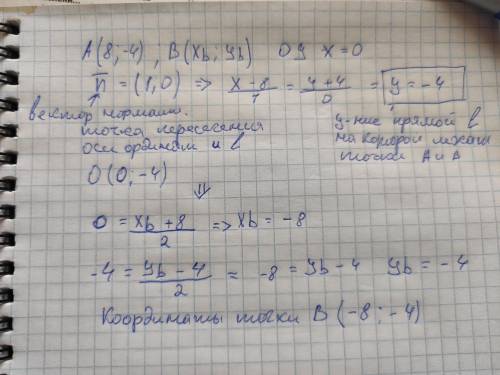 A(8;-4) ; B(xb; yb) ОУ x=0
n̅ = (1,0) => (x-8)/1 = (y+4)/0 = y=-4
вектор нормали.
точка пересечения
оси ординат и l
у-ние прямой l
на которой лежат
точки А и А
O(0;-4)
⇓
0 = (xb+8)/2 => xb = -8
-4 = (yb-4)/2 = -8 = yb-4 yb = -4
Координаты точки B(-8;-4)